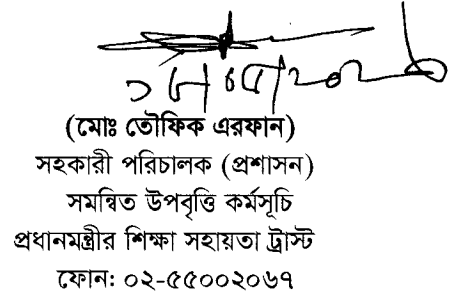 (মোঃ তৌফিক এরফান)
সহকারী পরিচালক (প্রশাসন)
সমন্বিত উপবৃত্তি কর্মসূচি
প্রধানমন্ত্রীর শিক্ষা সহায়তা ট্রাস্ট
ফোন: ০২-৫৫০০২০৬৭